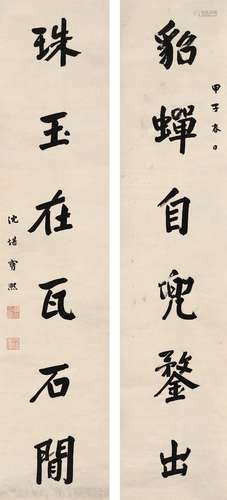 貂蟬自兜鍪出
甲子春日
珠玉在瓦石間
沈盦寶熙